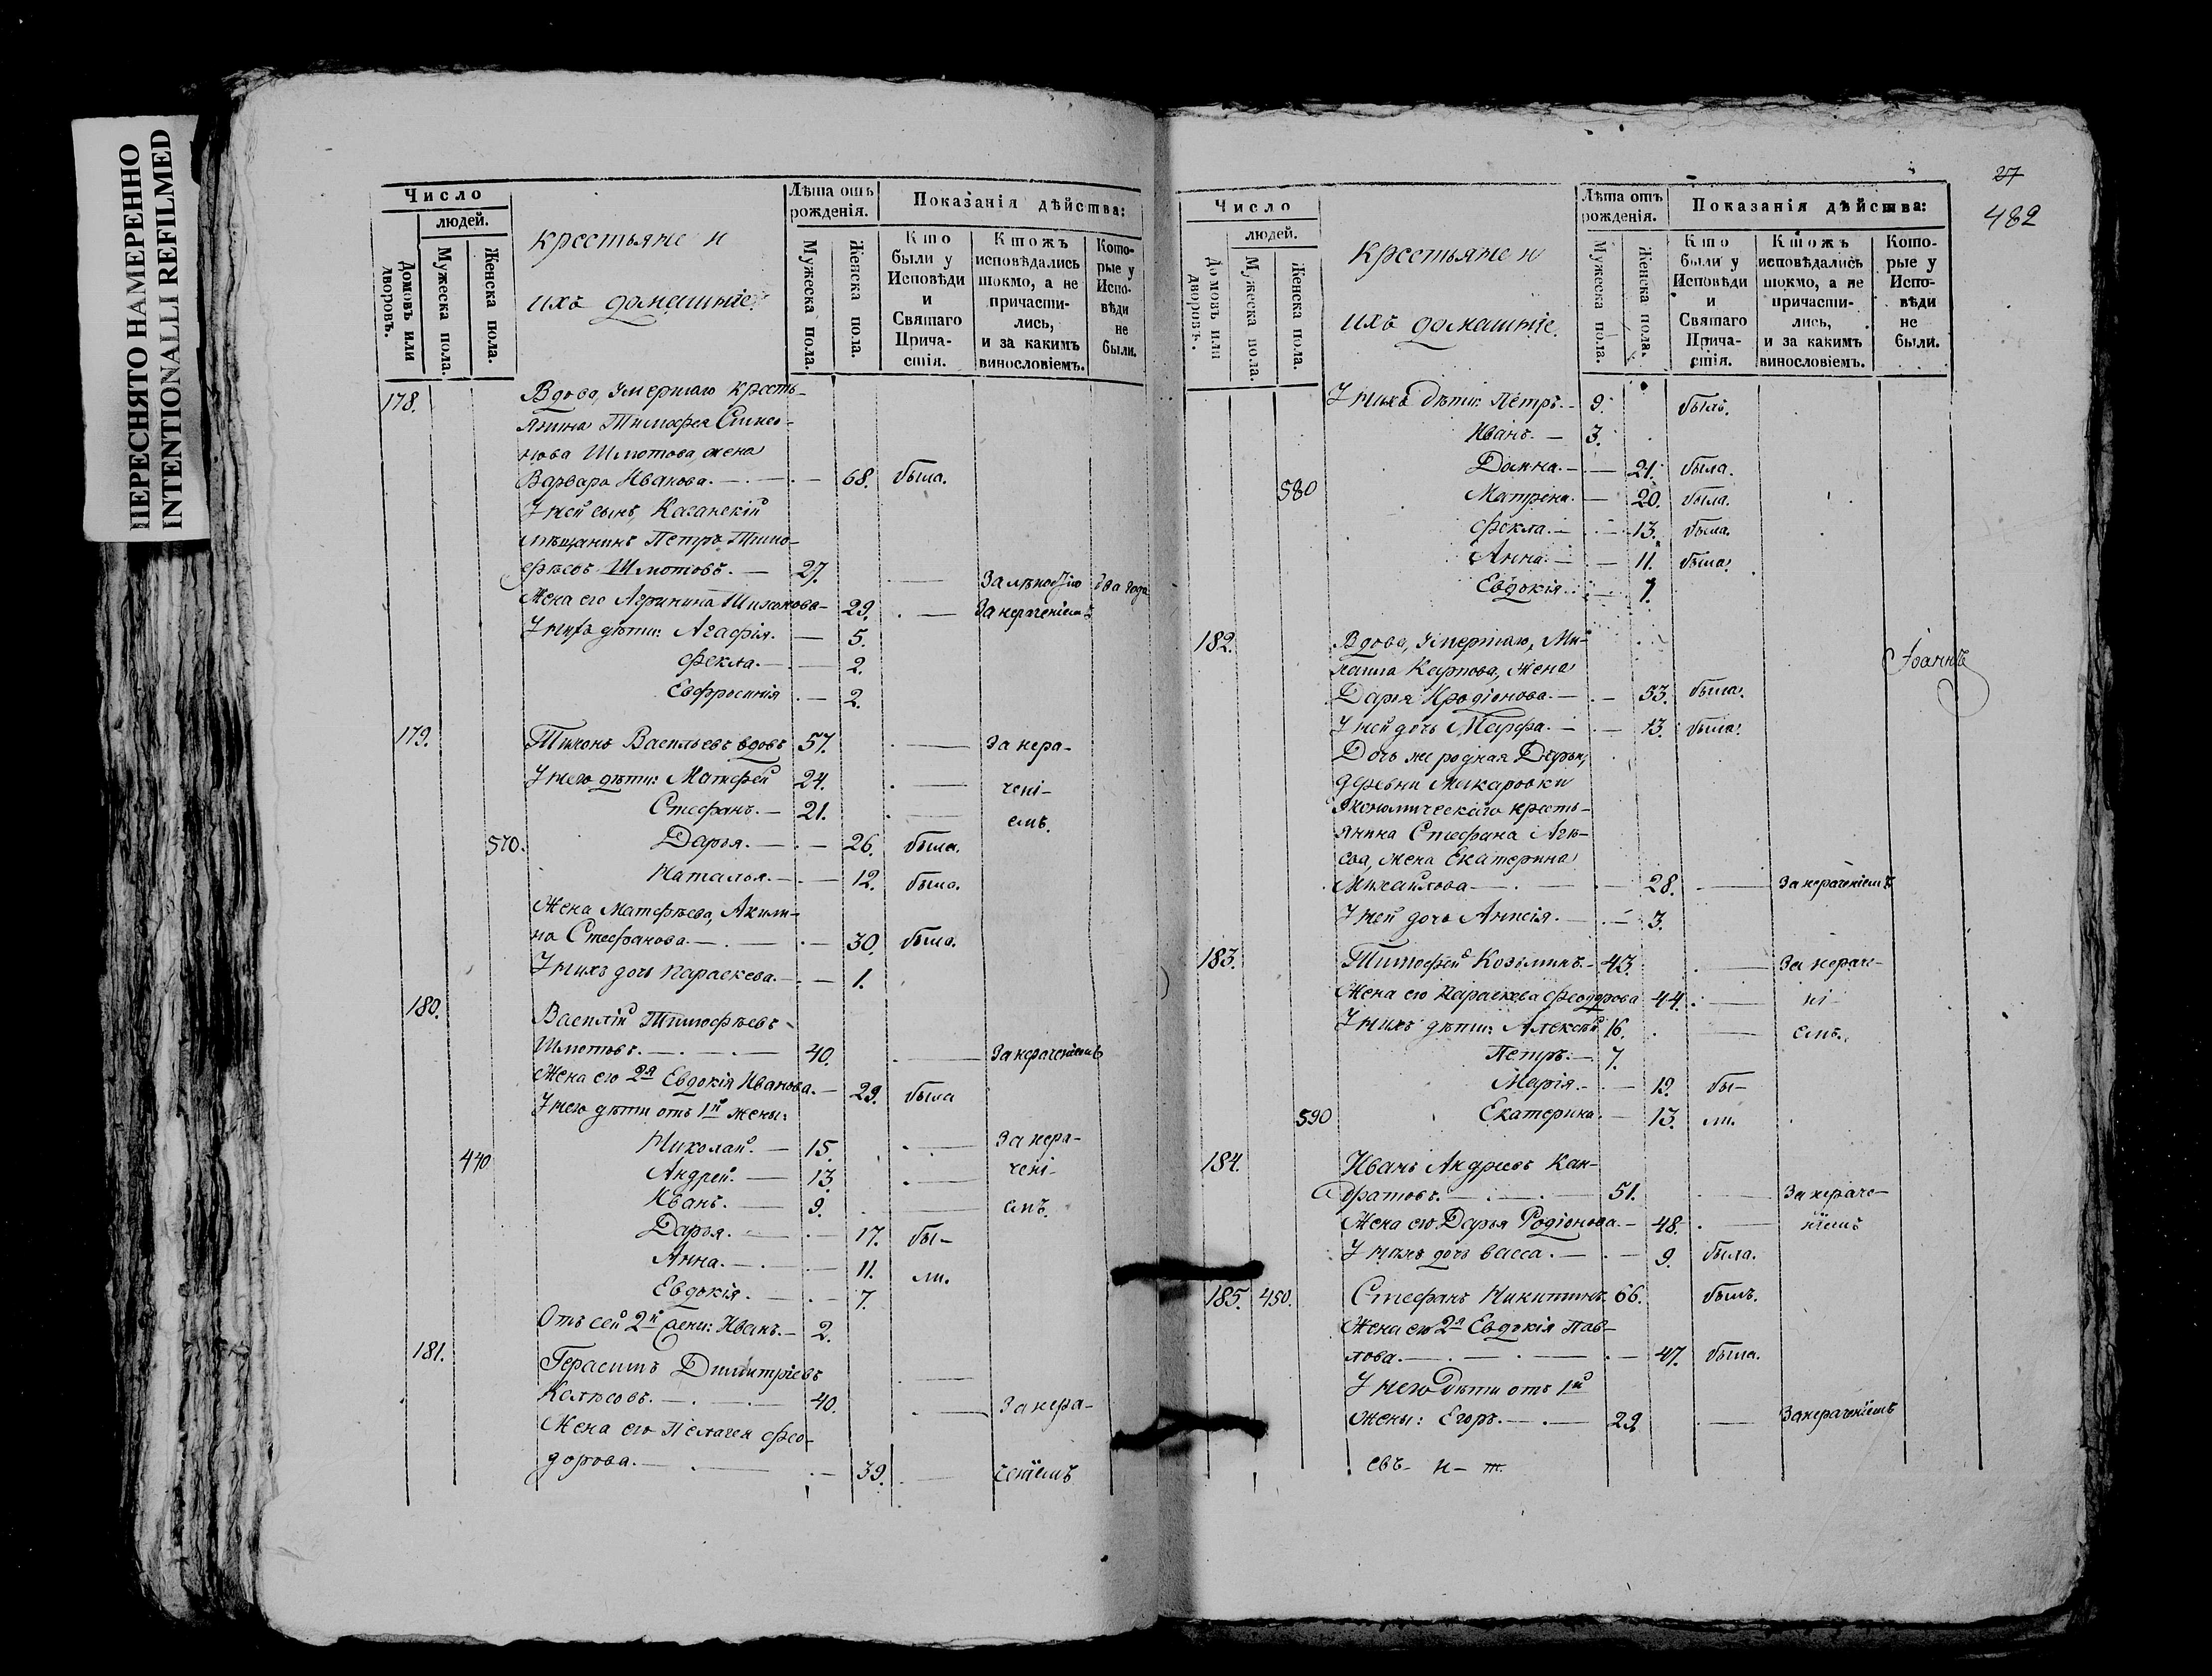 ПЕРЕСНЯТО НАМЕРЕННО
INTENTIONALLI REFILMED
Число
людей.
Домовъ или дворовъ.
Мужеска пола.
Женска пола.
крестьяне и
ихъ домашніе.
Лѣта отъ рожденія.
Мужеска пола.
Женска пола.
Показанія дѣйства:
Кто были у Исповѣди и Святаго Причастія.
Ктожъ исповѣдались токмо, а не причастились, и за какимъ винословіемъ.
Которые у Исповѣди не были.
178. Вдова, умершаго кресть-
янина Тимофея Симео-
нова Шмотова, жена
Варвара Иванова. — 68. была.
У ней сынъ, Казанскій
мѣщанинъ Петръ Тимо-
фѣевъ Шмотовъ. — 27. — За лѣностію два года
Жена его — 29. — За нерачениемъ
У нихъ дѣти: Агафія. — 5.
Фекла. — 2.
Евфросинія — 2.
179. Тихонъ Васильевъ вдовъ 57. — За нера-
У него дѣти: Матфей 24. — чені-
Стефанъ. — 21. — емъ.
570. Дарья. — 26. была.
Наталья. — 12. была.
Жена Матфѣева, Акили-
на Стефанова. — 30. была.
У нихъ дочь Параскева. — 1.
180. Василій Тимофѣевъ
Шмотовъ. — 40. — За нерачениемъ
Жена его 2я Евдокія Иванова. — 29. была
У него дѣти отъ 1й жены:
Николай. — 15. — За нера-
440 Андрей. — 13 — чені-
Иванъ. — 9. — емъ.
Дарья. — 17. бы-
Анна. — 11. ли.
Евдокія. — 7.
Отъ сей 2й жены: Иванъ. — 2.
181. Герасимъ Димитріевъ
40. — За нера-
Жена его Пелагея Фео-
дорова. — 39. — ченіемъ
27
482
Число
людей.
Домовъ или дворовъ.
Мужеска пола.
Женска пола.
крестьяне и
ихъ домашніе.
Лѣта отъ рожденія.
Мужеска пола.
Женска пола.
Показанія дѣйства:
Кто были у Исповѣди и Святаго Причастія.
Ктожъ исповѣдались токмо, а не причастились, и за какимъ винословіемъ.
Которые у Исповѣди не были.
У нихъ дѣти: Петръ. — 9. былъ.
Иванъ. — 3.
Домна. — 21. была.
580 Матрена. — 20. была.
Фекла. — 13. была.
Анна. — 11. была.
Евдокія. — 7.
182. Вдова, умершаго, Ми-
хаила Карпова, жена
Іоаннъ
Дарья Иродіонова. — 53. была.
У ней дочь Марфа. — 13. была.
Дочь же родная
деревни Макаровки
экономическаго кресть-
янина Стефана
жена Екатерина
Михайлова — 28. — За нераченіемъ
У ней дочь Анисія. — 3.
183. Тимофей Козьминъ. — 43. — За нераче-
Жена его Параскева Феодорова 44. — ні-
У нихъ дѣти: Алексѣй 16. — емъ.
Петръ. — 7.
Марія. — 19. бы-
590 Екатерина. — 13. ли.
184. Иванъ Андреевъ Кан-
дратовъ. — 51. — За нераче-
Жена его Дарья Родіонова. — 48. — ніемъ
У нихъ дочь Васса. — 9. была.
185. 450. Стефанъ Никитинъ. 66. былъ.
Жена его 2я Евдокія Пав-
лова. — 47. была.
У него дѣти отъ 1й
жены: Егоръ. — 29. — За нераченіемъ